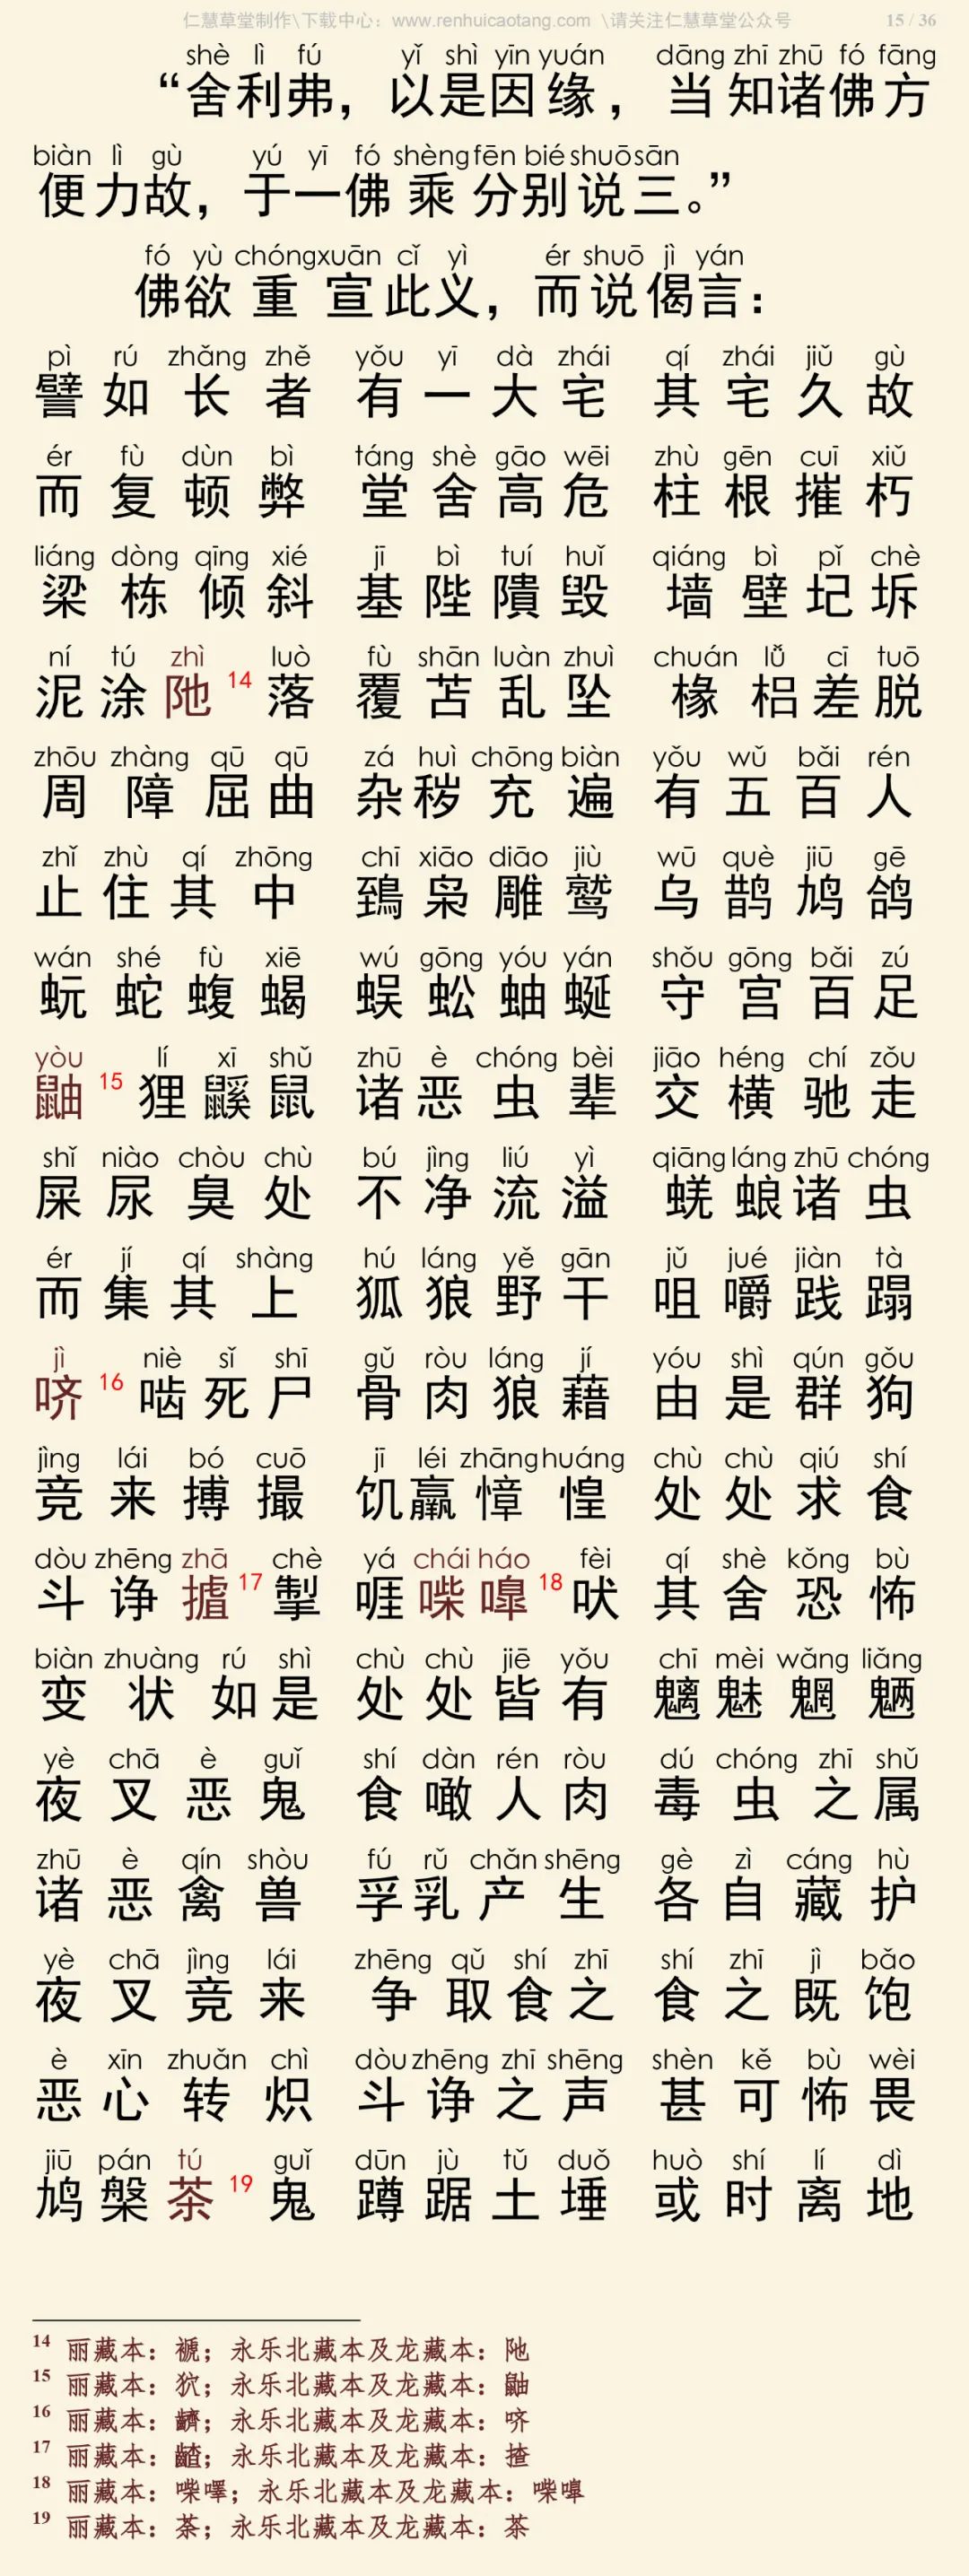 仁慧草堂制作\下载中心：www.renhuicaotang.com \请关注仁慧草堂公众号 15 / 36
shè lì fú yǐ shì yīn yuán dāng zhī zhū fó fāng
“舍利弗，以是因缘，当知诸佛方
biàn lì gù yú yī fó shèng fēn bié shuō sān
便力故，于一佛乘分别说三。”
fó yù chóng xuān cǐ yì ér shuō jì yán
佛欲重宣此义，而说偈言：
pì rú zhǎng zhě yǒu yī dà zhái qí zhái jiǔ gù
譬如长者 有一大宅 其宅久故
ér fù dùn bì táng shè gāo wēi zhù gēn cuī xiǔ
而复顿弊 堂舍高危 柱根摧朽
liáng dòng qīng xié jī bì tuí huǐ qiáng bì pǐ chè
梁栋倾斜 基陛隤毁 墙壁圮坼
ní tú zhì luò fù shān luàn zhuì chuán lǚ cī tuō
泥涂阤14落 覆苫乱坠 椽梠差脱
zhōu zhàng qū qū zá huì chōng biàn yǒu wǔ bǎi rén
周障屈曲 杂秽充遍 有五百人
zhǐ zhù qí zhōng chī xiāo diāo jiù wū què jiū gē
止住其中 鵄枭雕鹫 乌鹊鸠鸽
wán shé fù xiē wú gōng yóu yán shǒu gōng bǎi zú
蚖蛇蝮蝎 蜈蚣蚰蜒 守宫百足
yòu lí xī shǔ zhū è chóng bèi jiāo héng chí zǒu
鼬15狸鼷鼠 诸恶虫辈 交横驰走
shǐ niào chòu chù bú jìng liú yì qiāng láng zhū chóng
屎尿臭处 不净流溢 蜣蜋诸虫
ér jí qí shàng hú láng yě gān jǔ jué jiàn tà
而集其上 狐狼野干 咀嚼践蹋
jì niè sǐ shī gǔ ròu láng jí yóu shì qún gǒu
哜16啮死尸 骨肉狼藉 由是群狗
jìng lái bó cuō jī léi zhāng huáng chù chù qiú shí
竞来搏撮 饥羸慞惶 处处求食
dòu zhēng zhā chè yá chái háo fèi qí shè kǒng bù
斗诤摣17掣 啀喍嗥18吠 其舍恐怖
biàn zhuàng rú shì chù chù jiē yǒu chī mèi wǎng liǎng
变状如是 处处皆有 魑魅魍魉
yè chā è guǐ shí dàn rén ròu dú chóng zhī shǔ
夜叉恶鬼 食噉人肉 毒虫之属
zhū è qín shòu fú rǔ chǎn shēng gè zì cáng hù
诸恶禽兽 孚乳产生 各自藏护
yè chā jìng lái zhēng qǔ shí zhī shí zhī jì bǎo
夜叉竞来 争取食之 食之既饱
è xīn zhuǎn chì dòu zhēng zhī shēng shèn kě bù wèi
恶心转炽 斗诤之声 甚可怖畏
jiū pán tú guǐ dūn jù tǔ duǒ huò shí lí dì
鸠槃茶19鬼 蹲踞土埵 或时离地
14 丽藏本：褫；永乐北藏本及龙藏本：阤
15 丽藏本：狖；永乐北藏本及龙藏本：鼬
16 丽藏本：齌；永乐北藏本及龙藏本：哜
17 丽藏本：齇；永乐北藏本及龙藏本：揸
18 丽藏本：喍嘷；永乐北藏本及龙藏本：喍嗥
19 丽藏本：荼；永乐北藏本及龙藏本：茶